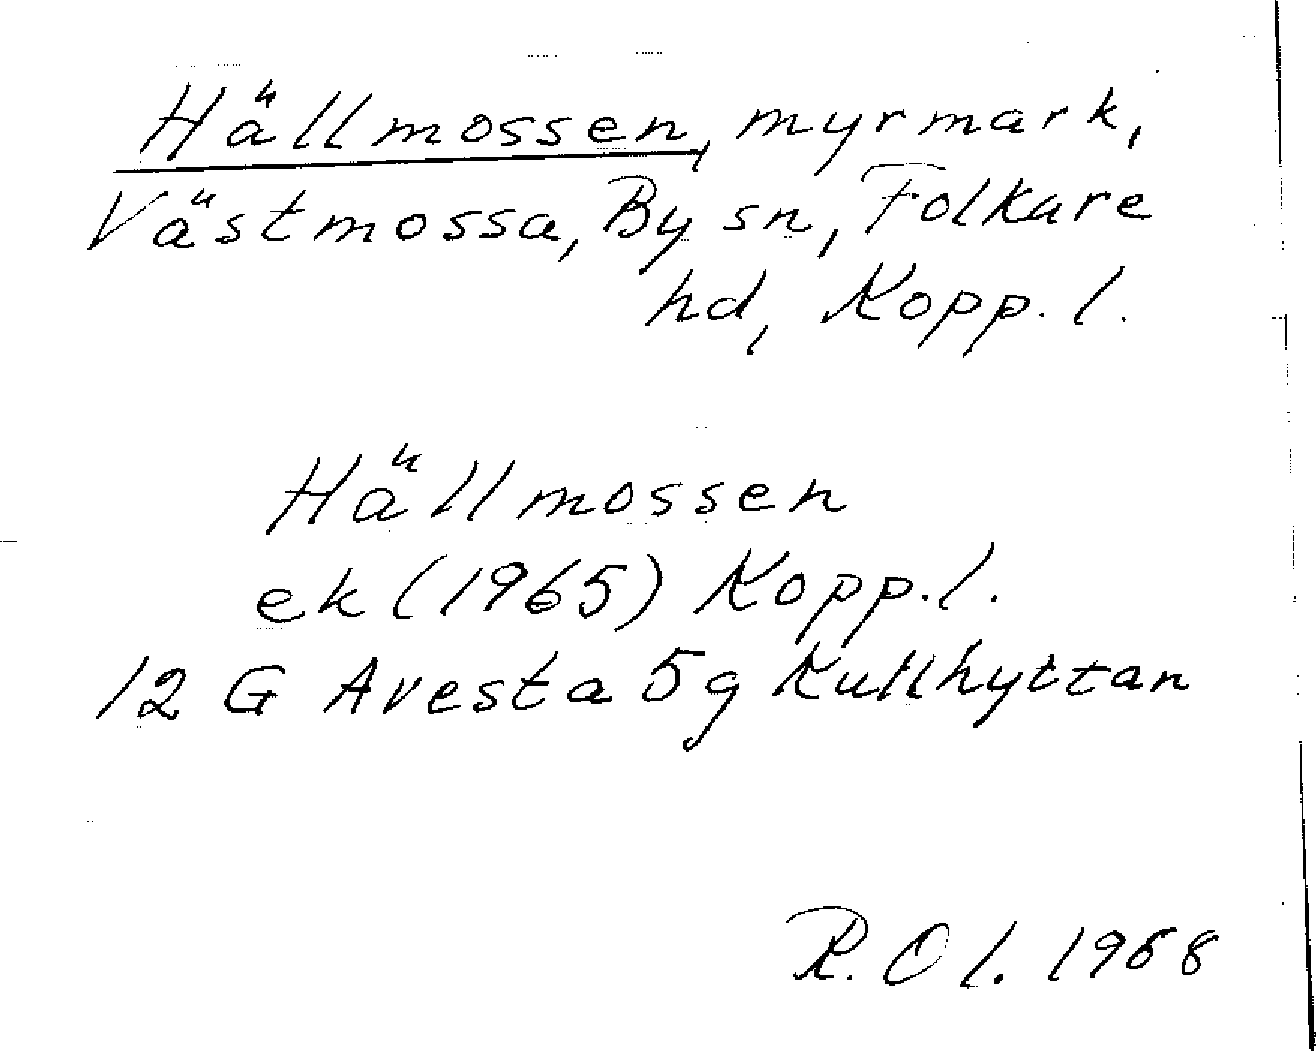 Hällmossen, myrmark,
Västmossa, By sn, Folkare
hd, Kopp. l.
Hällmossen
ek (1965) Kopp. l.
12 G Avesta 5g Kullhyttan
R. Ol. 1968